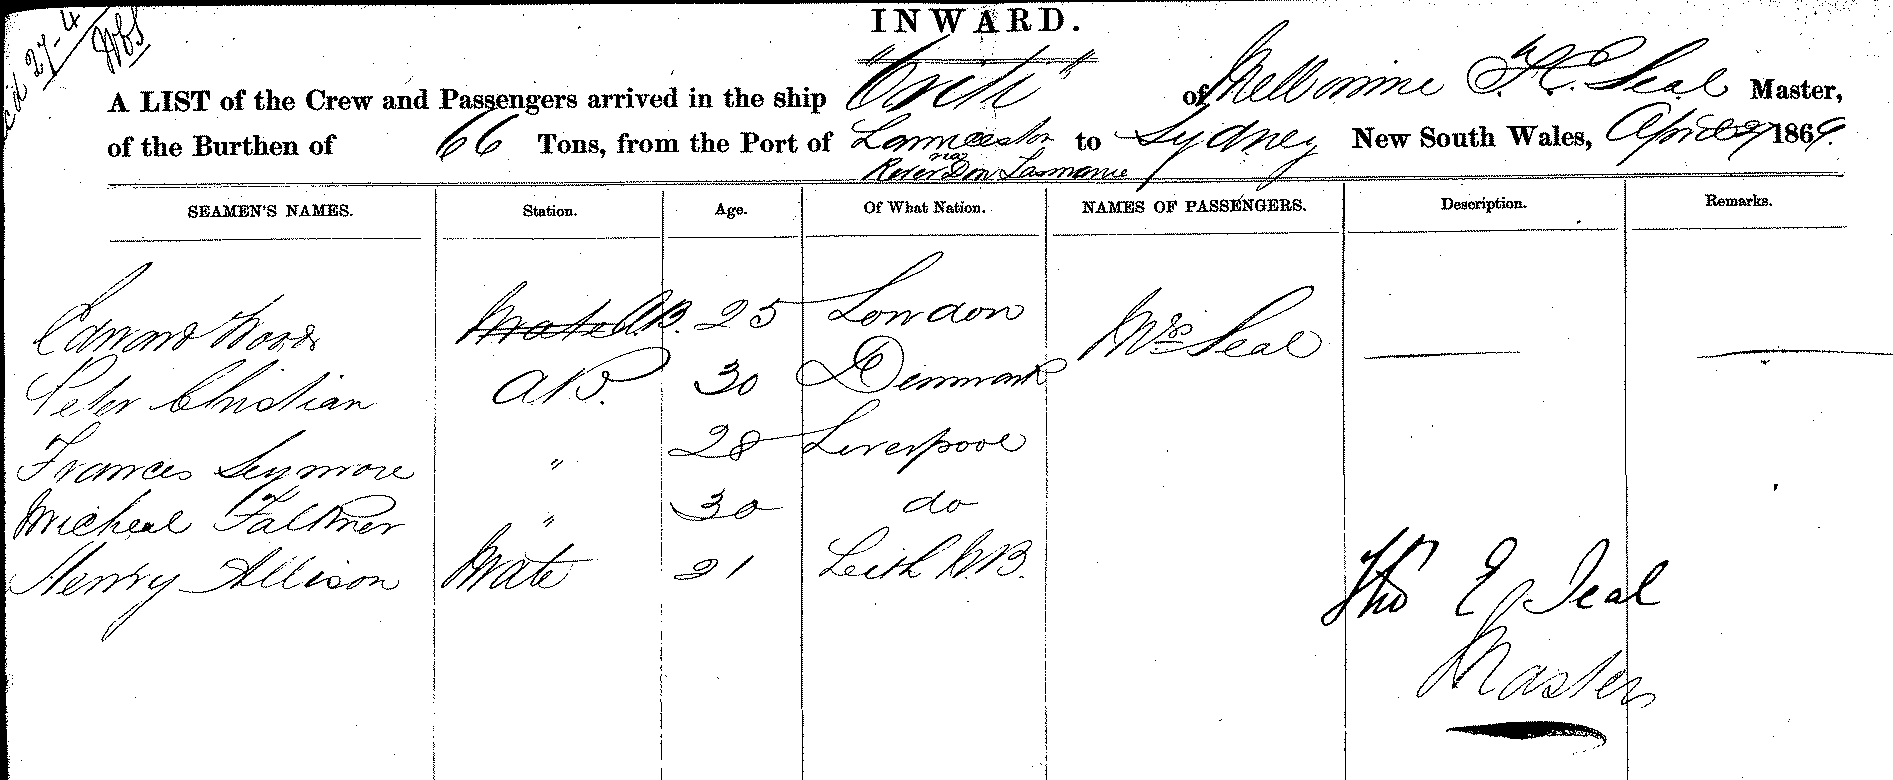 27-4
INWARD.
A LIST of the Crew and Passengers arrived in the ship of Melbourne Seal Master,
of the Burthen of 66 Tons, from the Port of Launceston to Sydney New South Wales, April 27 1869.
River Don Tasmania
SEAMEN'S NAMES. Station. Age. Of What Nation. NAMES OF PASSENGERS. Description. Remarks.
Edward Woods Mate A.B. 25 London Mrs Seal
Peter Christian AB. 30 Denmark
Frances Seymore " 28 Liverpool
Micheal Falkner " 30 do
Henry Allison Mate 21 Leith N.B.
Thos E Seal
Master